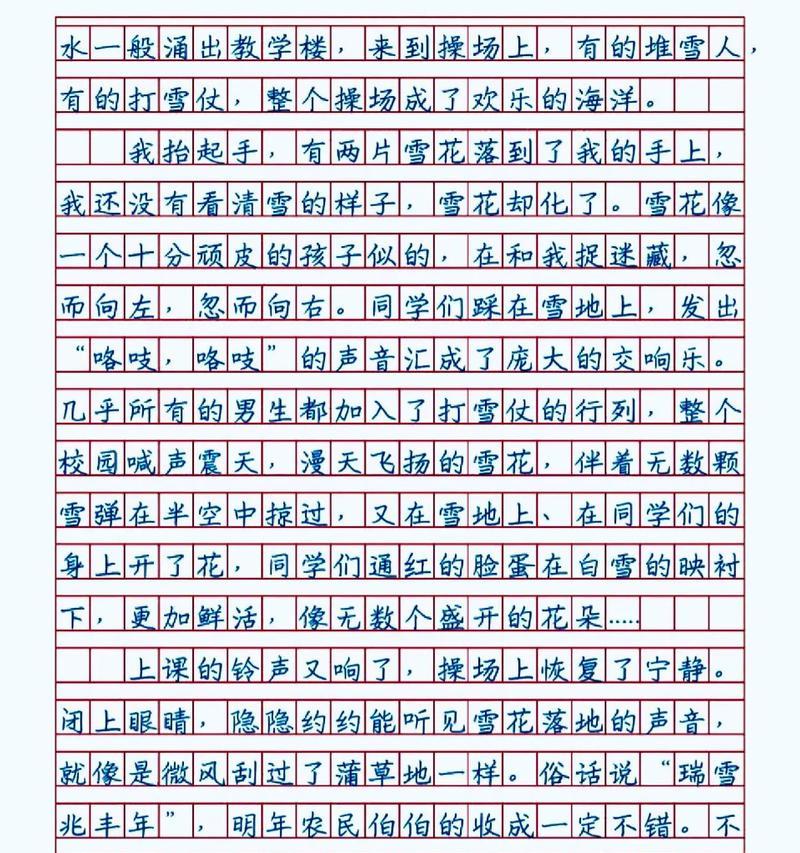 水一般涌出教学楼，来到操场上，有的堆雪人，
有的打雪仗，整个操场成了欢乐的海洋。
我抬起手，有两片雪花落到了我的手上，
我还没有看清雪的样子，雪花却化了。雪花像
一个十分顽皮的孩子似的，在和我捉迷藏，忽
而向左，忽而向右。同学们踩在雪地上，发出
“咯吱，咯吱”的声音汇成了庞大的交响乐。
几乎所有的男生都加入了打雪仗的行列，整个
校园喊声震天，漫天飞扬的雪花，伴着无数颗
雪弹在半空中掠过，又在雪地上、在同学们的
身上开了花，同学们通红的脸蛋在白雪的映衬
下，更加鲜活，像无数个盛开的花朵……
上课的铃声又响了，操场上恢复了宁静。
闭上眼睛，隐隐约约能听见雪花落地的声音，
就像是微风刮过了蒲草地一样。俗话说“瑞雪
兆丰年”，明年农民伯伯的收成一定不错。不